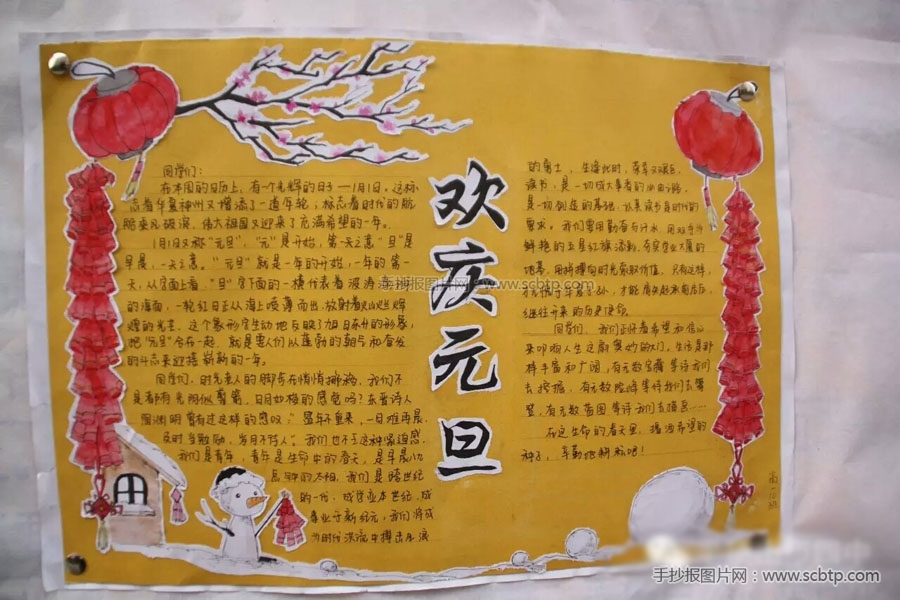 欢庆元旦
同学们：
在本国的日历上，有个光辉的日子——1月1日。这标
志着华夏神州又增添了一道年轮；标志着时代的航
船乘风破浪，伟大祖国又迎来了充满希望的一年。
1月1日又称"元旦"，"元"是开始，第一天之意"旦"是
早晨，一天之意。"元旦"就是一年的开始，一年的第一
天，从字面上看，"旦"字下面的一横代表着波涛
的海面，一轮红日正从海上喷薄而出，放射着
煌的光芒，这个象形字生动地反映了旭日东升的形象，
把"元旦"合在一起，就是要人们以蓬勃的朝气和奋发
的斗志来迎接崭新的一年。
同学们，时光老人的脚步在悄悄挪移，我们不
是都有光阴似箭，日月如梭的感觉吗？东晋诗人
陶渊明曾有过这样的感叹："盛年不重来，一日难再晨，
及时当勉励，岁月不待人"。我们也不乏这种紧迫感。
我们是青年，青年是生命中的春天，是早晨八
点钟的太阳，我们是跨世纪
的一代，成学业本世纪，成
事业于新纪元，我们将成
为时代洪流中搏击风浪
的勇士，生逢此时，荣幸又艰巨
读书，是一切成大事者的必由之路，
是一切创造的基础，认真读书是时代的
要求。我们要用勤奋与汗水，用
鲜艳的五星红旗添彩，夯实
地基，用拼搏向时光索取价值，只有这样，
才无愧于华夏子孙，才能肩负起承前启后，
继往开来的历史使命。
同学们，我们正怀着希望和信心
来叩响人生这扇奥妙的大门，生活是那
样丰富和广阔，有无数宝藏等待我们
去挖掘，有无数险峰等待我们去攀
登，有无数蓝图等待我们去描画……
在这生命的春天里，播洒希望的
种子，辛勤地耕耘吧！
手抄报图片网 www.scbtp.com
手抄报图片网：www.scbtp.com